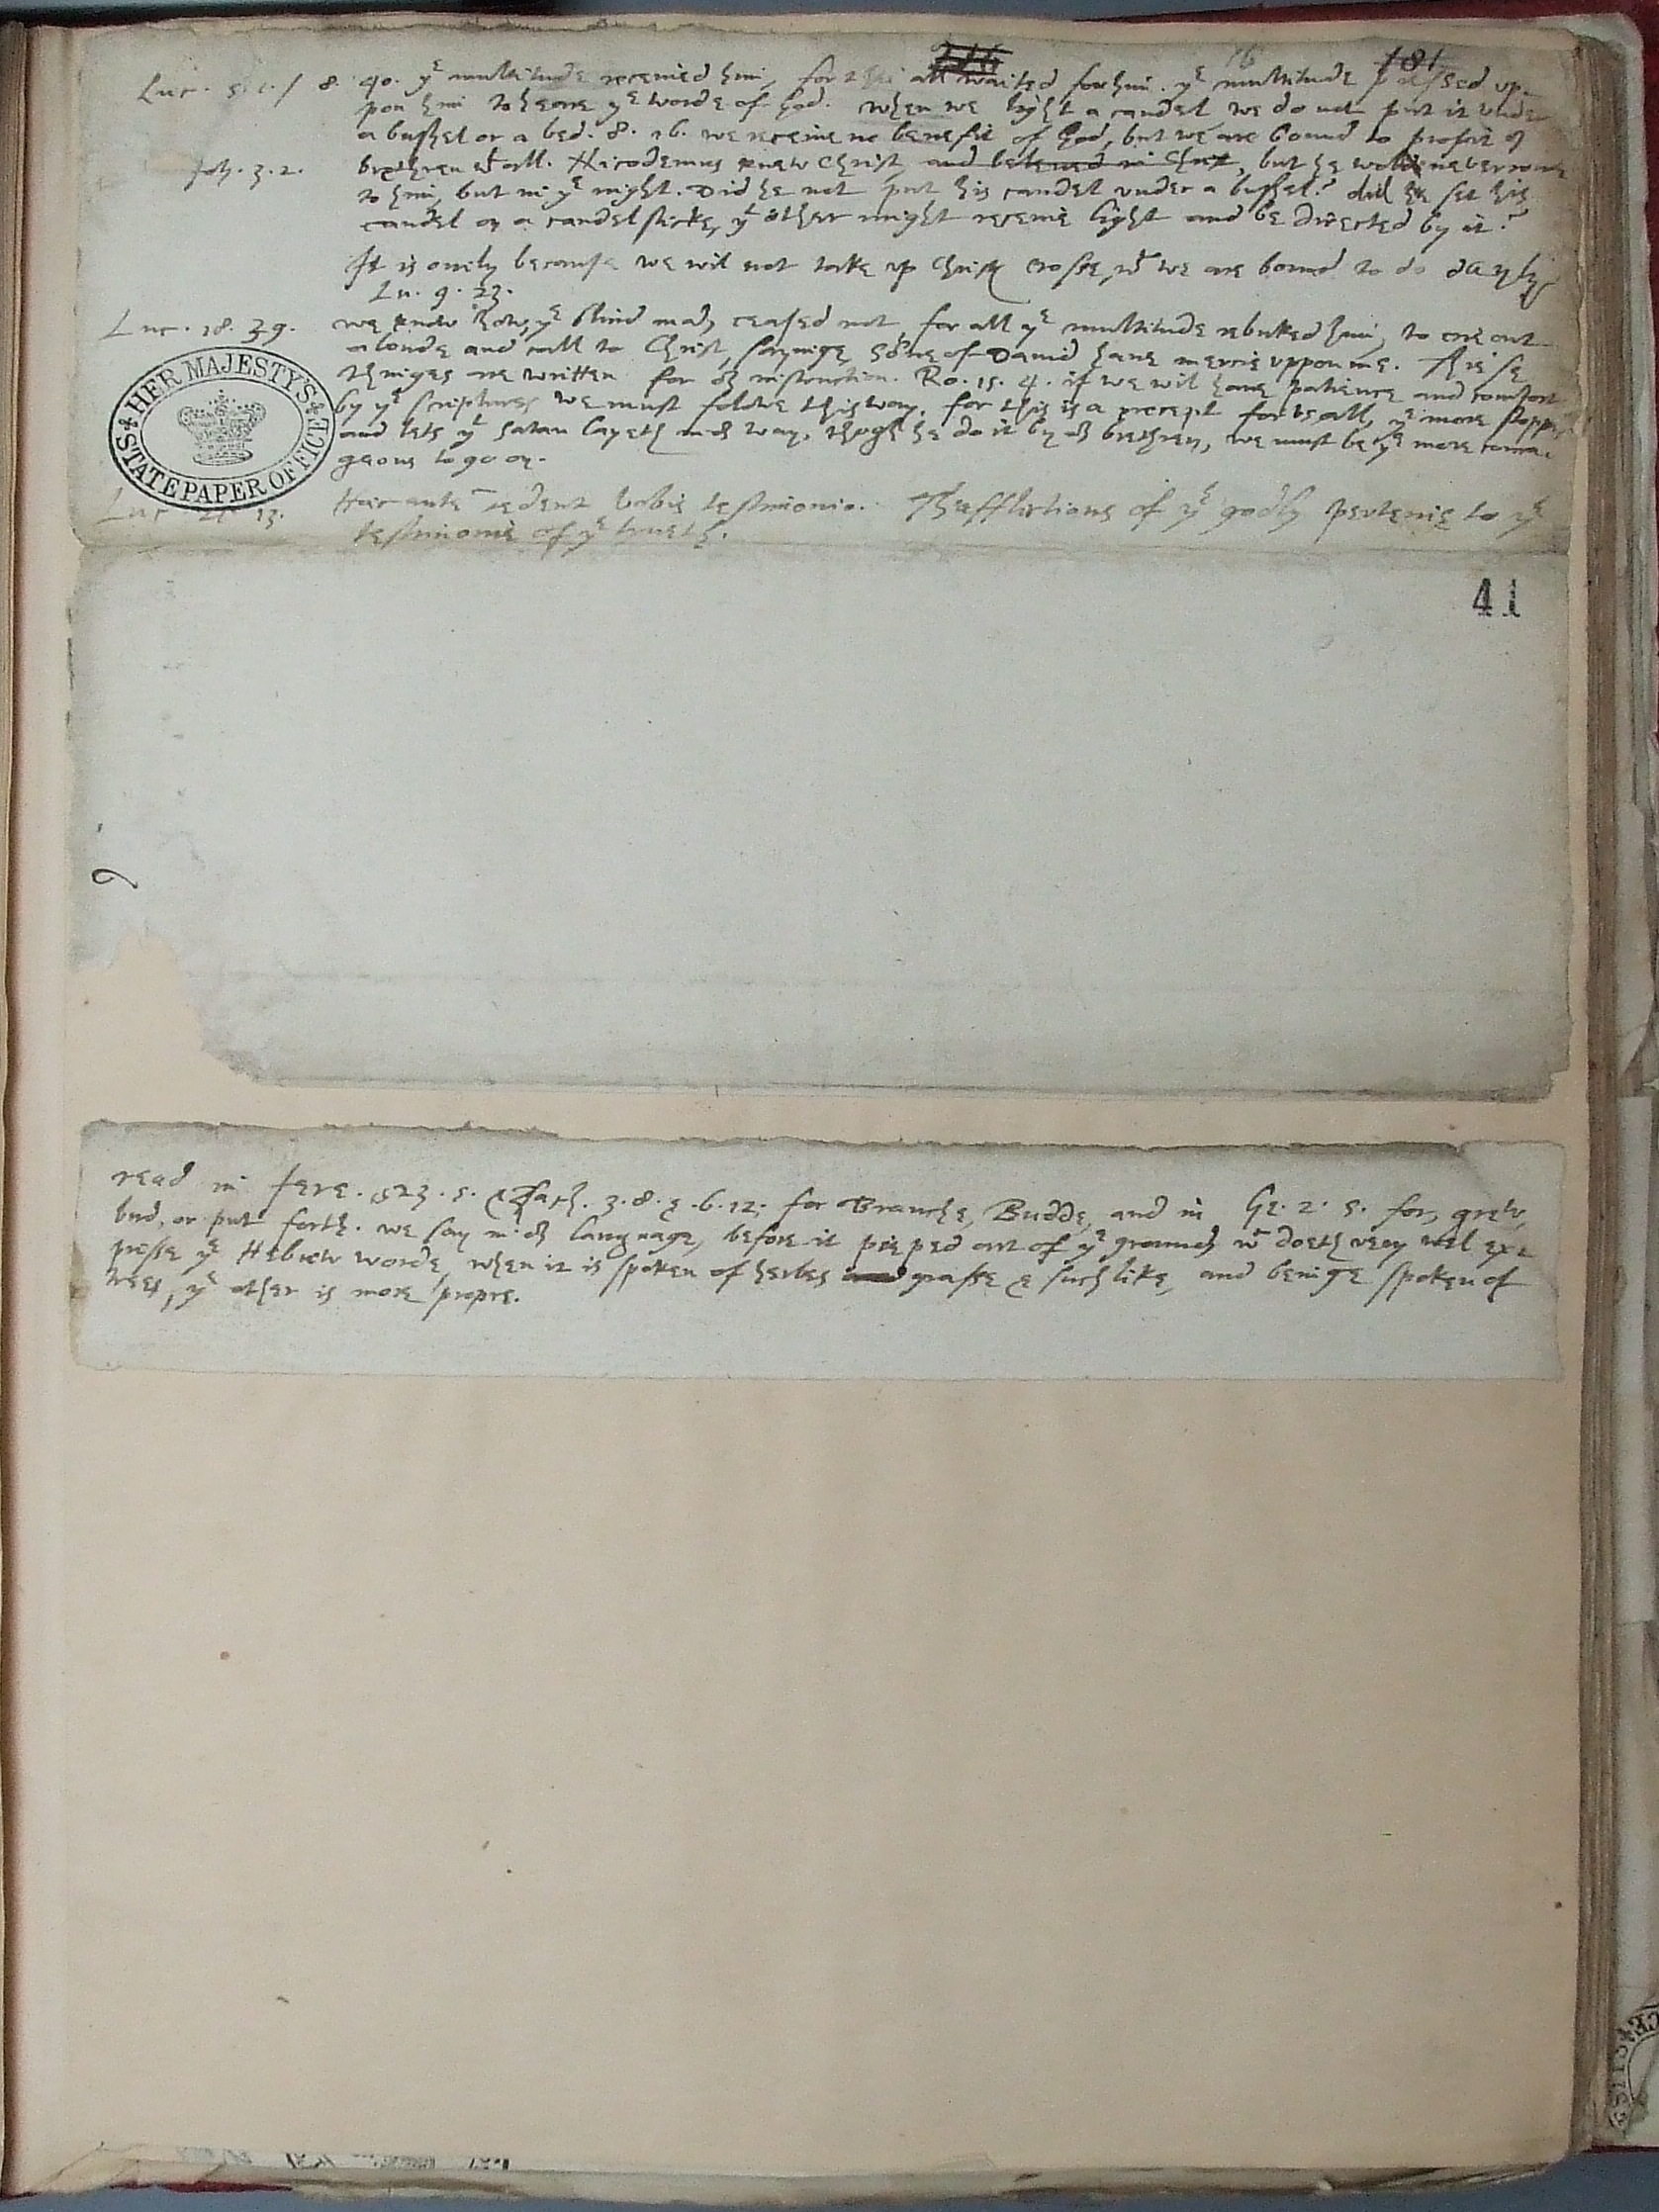 181
Luc. 5. 1. / 8. 40. yᵉ multitude received him, for thei all waited for him. yᵉ multitude preassed up-
pon him to heare yᵉ worde of God. when we light a candel we do not put it under
a bushel or a bed. 8. 16. we receive no benefit of God, but we are bound to profit oʳ
Joh. 3. 2. brethren wᵗ all. Nicodemus knew Christ, and beleved in Christ, but he wolde never come
to him, but in yᵉ night. Did he not put his candel under a bushel? did he set his
candel on a candelsticke, yᵗ other might receive light and be directed by it?
It is onely because we wil not take up Christs crosse, wᶜ we are bound to do dayly.
Lu. 9. 23.
Luc. 18. 39. we know how yᵉ blind man ceased not, for all yᵉ multitude rebuked him, to crie out
aloude and call to Christ, sayinge Sone of David have mercie uppon me. These
thinges are written for oʳ instruction. Ro. 15. 4. if we wil have patience and comfort
by yᵉ scriptures we must folowe this way. for this is a precept for us all, yᵉ more stoppes
and lets yᵗ Satan layeth in oʳ way, though he do it by oʳ brethren, we must be yᵉ more coura-
geous to go on.
HER MAJESTY'S STATE PAPER OFFICE
Luc. 21. 13. Haec autem cedent vobis testimonio. The afflictions of yᵉ godly perteine to yᵉ
testimonie of yᵉ trueth.
41
read in Jere. 23. 5. & Zach. 3. 8. & 6. 12. for Branche, Budde, and in Ge. 2. 5. for, grew,
bud, or put forth. we say in oʳ language, before it pieped out of yᵉ ground wᶜ doeth very wel ex-
presse yᵉ Hebrew worde, when it is spoken of herbes grasse & such like, and beinge spoken of
trees, yᵉ other is more propre.